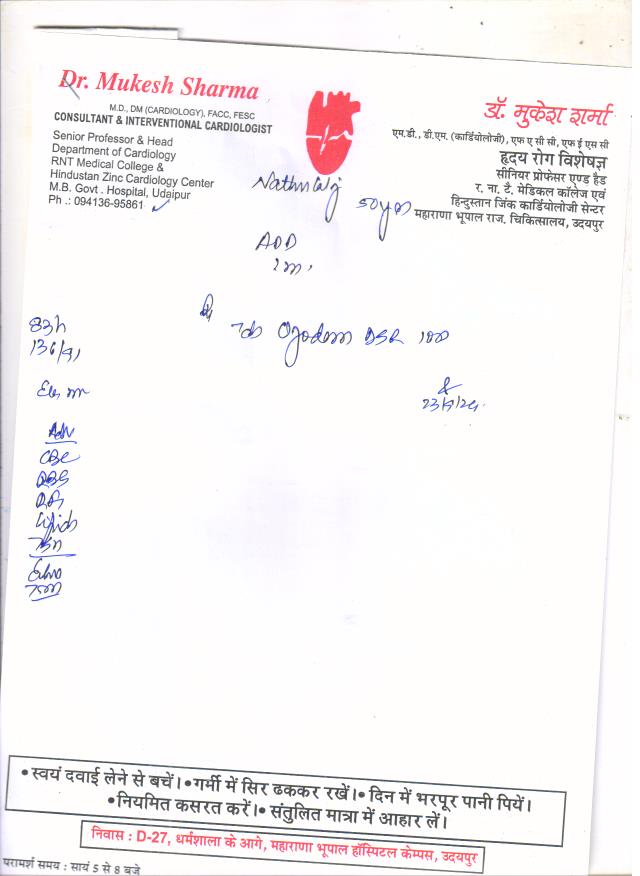 Dr. Mukesh Sharma
M.D., DM (CARDIOLOGY), FACC, FESC
CONSULTANT & INTERVENTIONAL CARDIOLOGIST
Senior Professor & Head
Department of Cardiology
RNT Medical College &
Hindustan Zinc Cardiology Center
M.B. Govt . Hospital, Udaipur
Ph .: 094136-95861
डॉ. मुकेश शर्मा
एम.डी., डी.एम. (कार्डियोलोजी), एफ ए सी सी, एफ ई एस सी
हृदय रोग विशेषज्ञ
सीनियर प्रोफेसर एण्ड हैड
र. ना. टै. मेडिकल कॉलेज एवं
हिन्दुस्तान जिंक कार्डियोलोजी सेन्टर
महाराणा भूपाल राज. चिकित्सालय, उदयपुर
50y m
DSR 100
136/91
Adv
CBC
RBS
Lipids
Echo
•स्वयं दवाई लेने से बचें।•गर्मी में सिर ढककर रखें।• दिन में भरपूर पानी पियें।
•नियमित कसरत करें।• संतुलित मात्रा में आहार लें।
निवास : D-27, धर्मशाला के आगे, महाराणा भूपाल हॉस्पिटल केम्पस, उदयपुर
परामर्श समय : सायं 5 से 8 बजे